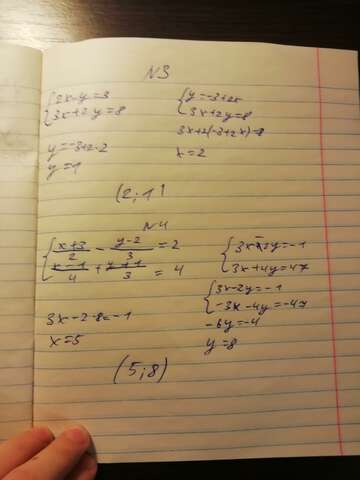 N3
{2x-y=3
3x+2y=8
{y=-3+2x
3x+2y=8
3x+2(-3+2x)=8
x=2
y=-3+2·2
y=1
(2;1)
N4
{x+3/2 - y-2/3 = 2
x-1/4 + y+1/3 = 4
{3x-2y=-1
3x+4y=47
{3x-2y=-1
-3x-4y=-47
-6y=-4
y=8
3x-2·8=-1
x=5
(5;8)